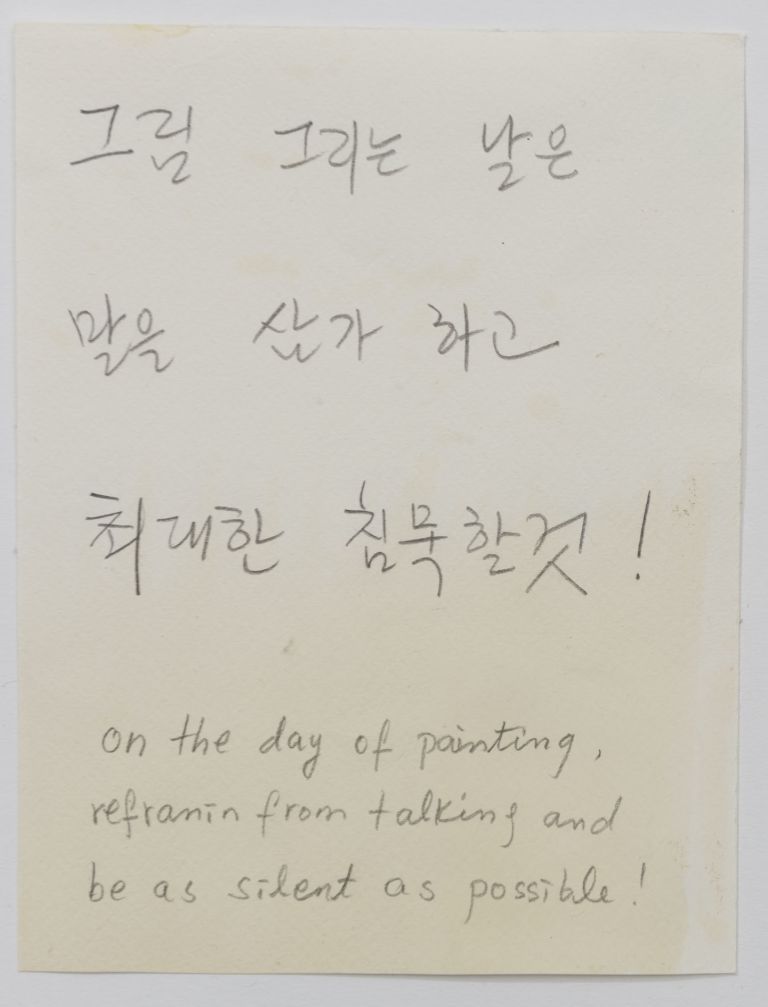 그림 그리는 날은
말을 삼가 하고
최대한 침묵할것!
on the day of painting,
refranin from talking and
be as silent as possible!